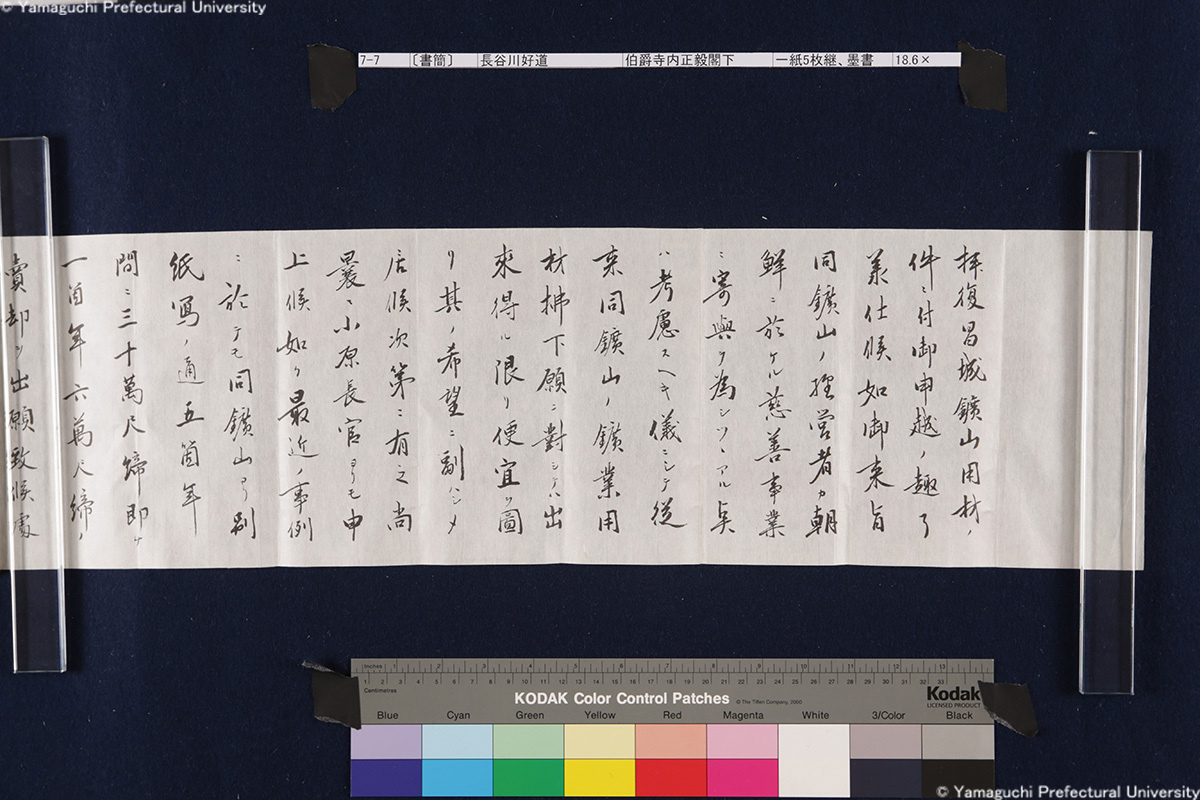 © Yamaguchi Prefectural University
7-7 〔書簡〕 長谷川好道 伯爵寺内正毅閣下 一紙5枚継、墨書 18.6×
拝復昌城鑛山用材ノ
件ニ付御申越ノ趣了
羕仕候如御来旨
同鑛山ノ経営者カ朝
鮮ニ於ケル慈善事業
ニ寄與ヲ為シツヽアル点
ハ考慮スヘキ儀ニシテ従
来同鑛山ノ鑛業用
材拂下願ニ對シテハ出
來得ル限リ便宜ヲ圖
リ其ノ希望ニ副ハシメ
居候次第ニ有之尚
曩ニ小原長官ヨリモ申
上候如ク最近ノ事例
ニ於テモ同鑛山ヨリ別
紙寫ノ通五箇年
間ニ三十萬尺締即チ
一箇年六萬尺締ノ
賣却ヲ出願致候處
Inches 1 2 3 4 5 6 7 8 9 10 11 12 13
1 2 3 4 5 6 7 8 9 10 11 12 13 14 15 16 17 18 19 20 21 22 23 24 25 26 27 28 29 30 31 32 33
Centimetres
KODAK Color Control Patches © The Tiffen Company, 2000 Kodak
LICENSED PRODUCT
Blue Cyan Green Yellow Red Magenta White 3/Color Black
© Yamaguchi Prefectural University